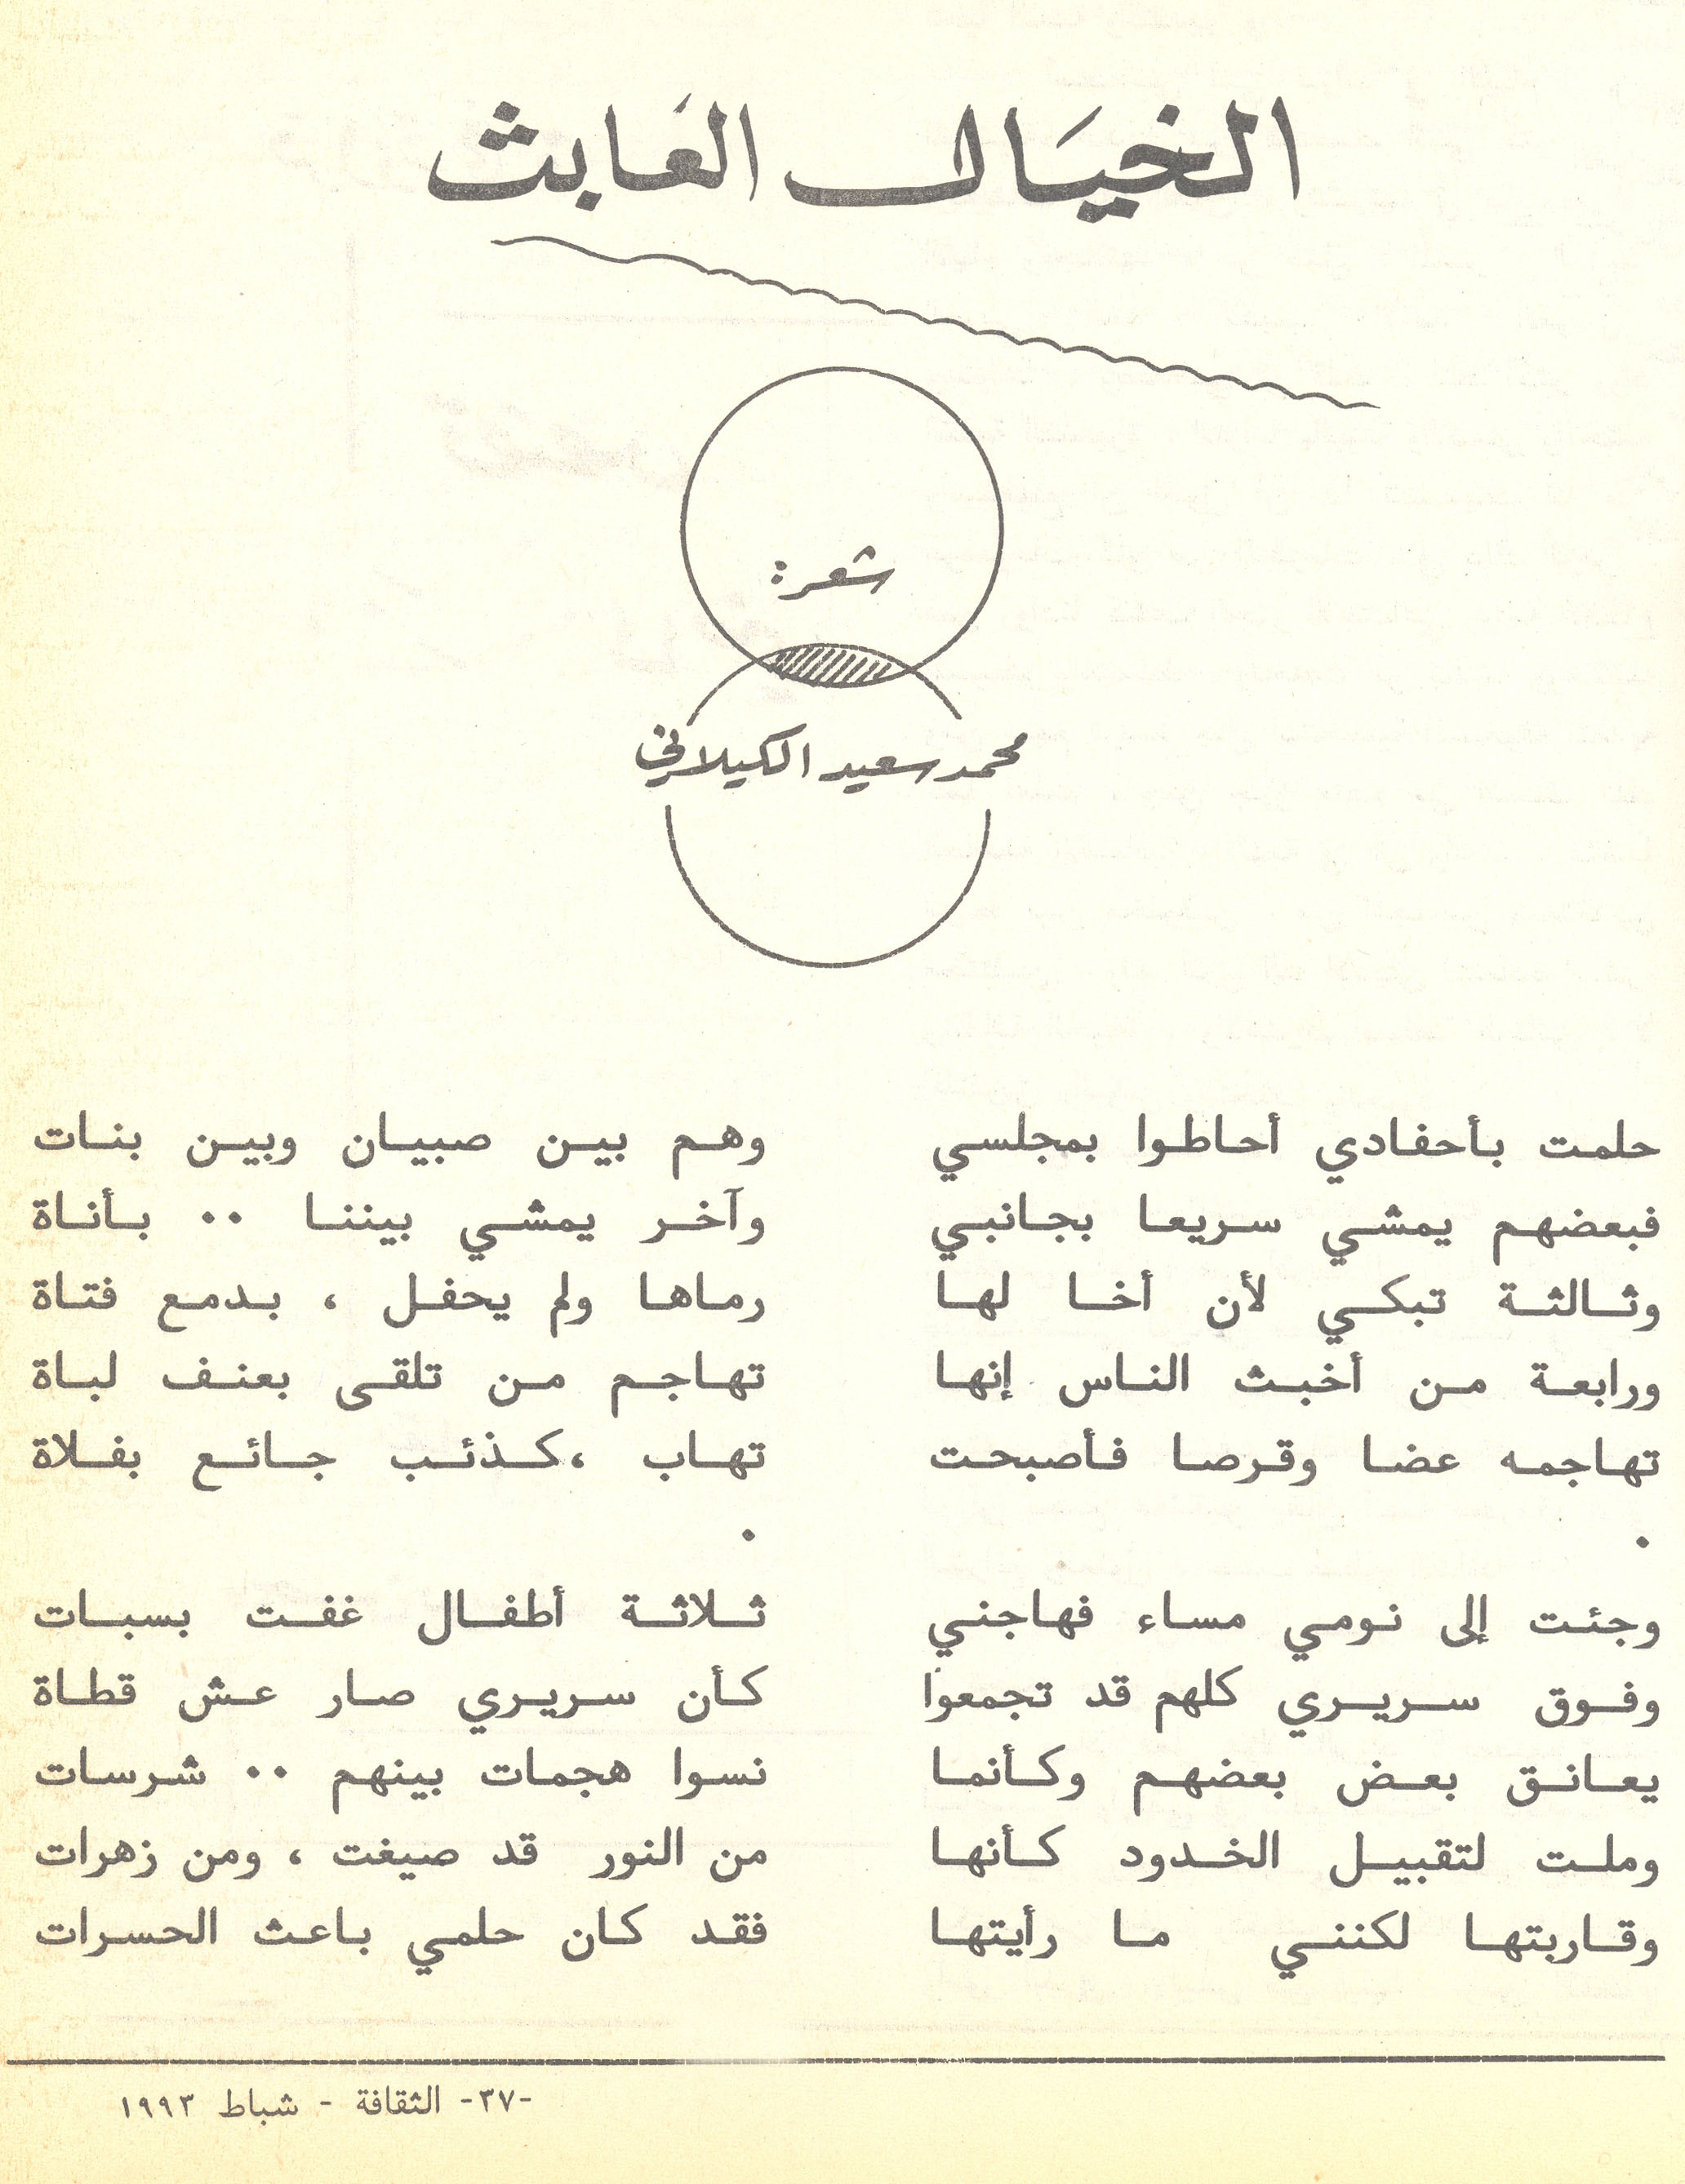 الخيال العابث
شعر:
محمد سعيد الكيلاني
حلمت بأحفادي أحاطوا بمجلسي وهم بين صبيان وبين بنات
فبعضهم يمشي سريعا بجانبي وآخر يمشي بيننا ٠٠ بأناة
وثالثة تبكي لأن أخا لها رماها ولم يحفل ، بدمع فتاة
ورابعة من أخبث الناس إنها تهاجم من تلقى بعنف لباة
تهاجمه عضا وقرصا فأصبحت تهاب ،كذئب جائع بفلاة
• •
وجئت إلى نومي مساء فهاجني ثلاثة أطفال غفت بسبات
وفوق سريري كلهم قد تجمعوا كأن سريري صار عش قطاة
يعانق بعض بعضهم وكأنما نسوا هجمات بينهم ٠٠ شرسات
وملت لتقبيل الخدود كأنها من النور قد صيغت ، ومن زهرات
وقاربتها لكنني ما رأيتها فقد كان حلمي باعث الحسرات
-٣٧- الثقافة - شباط ١٩٩٣